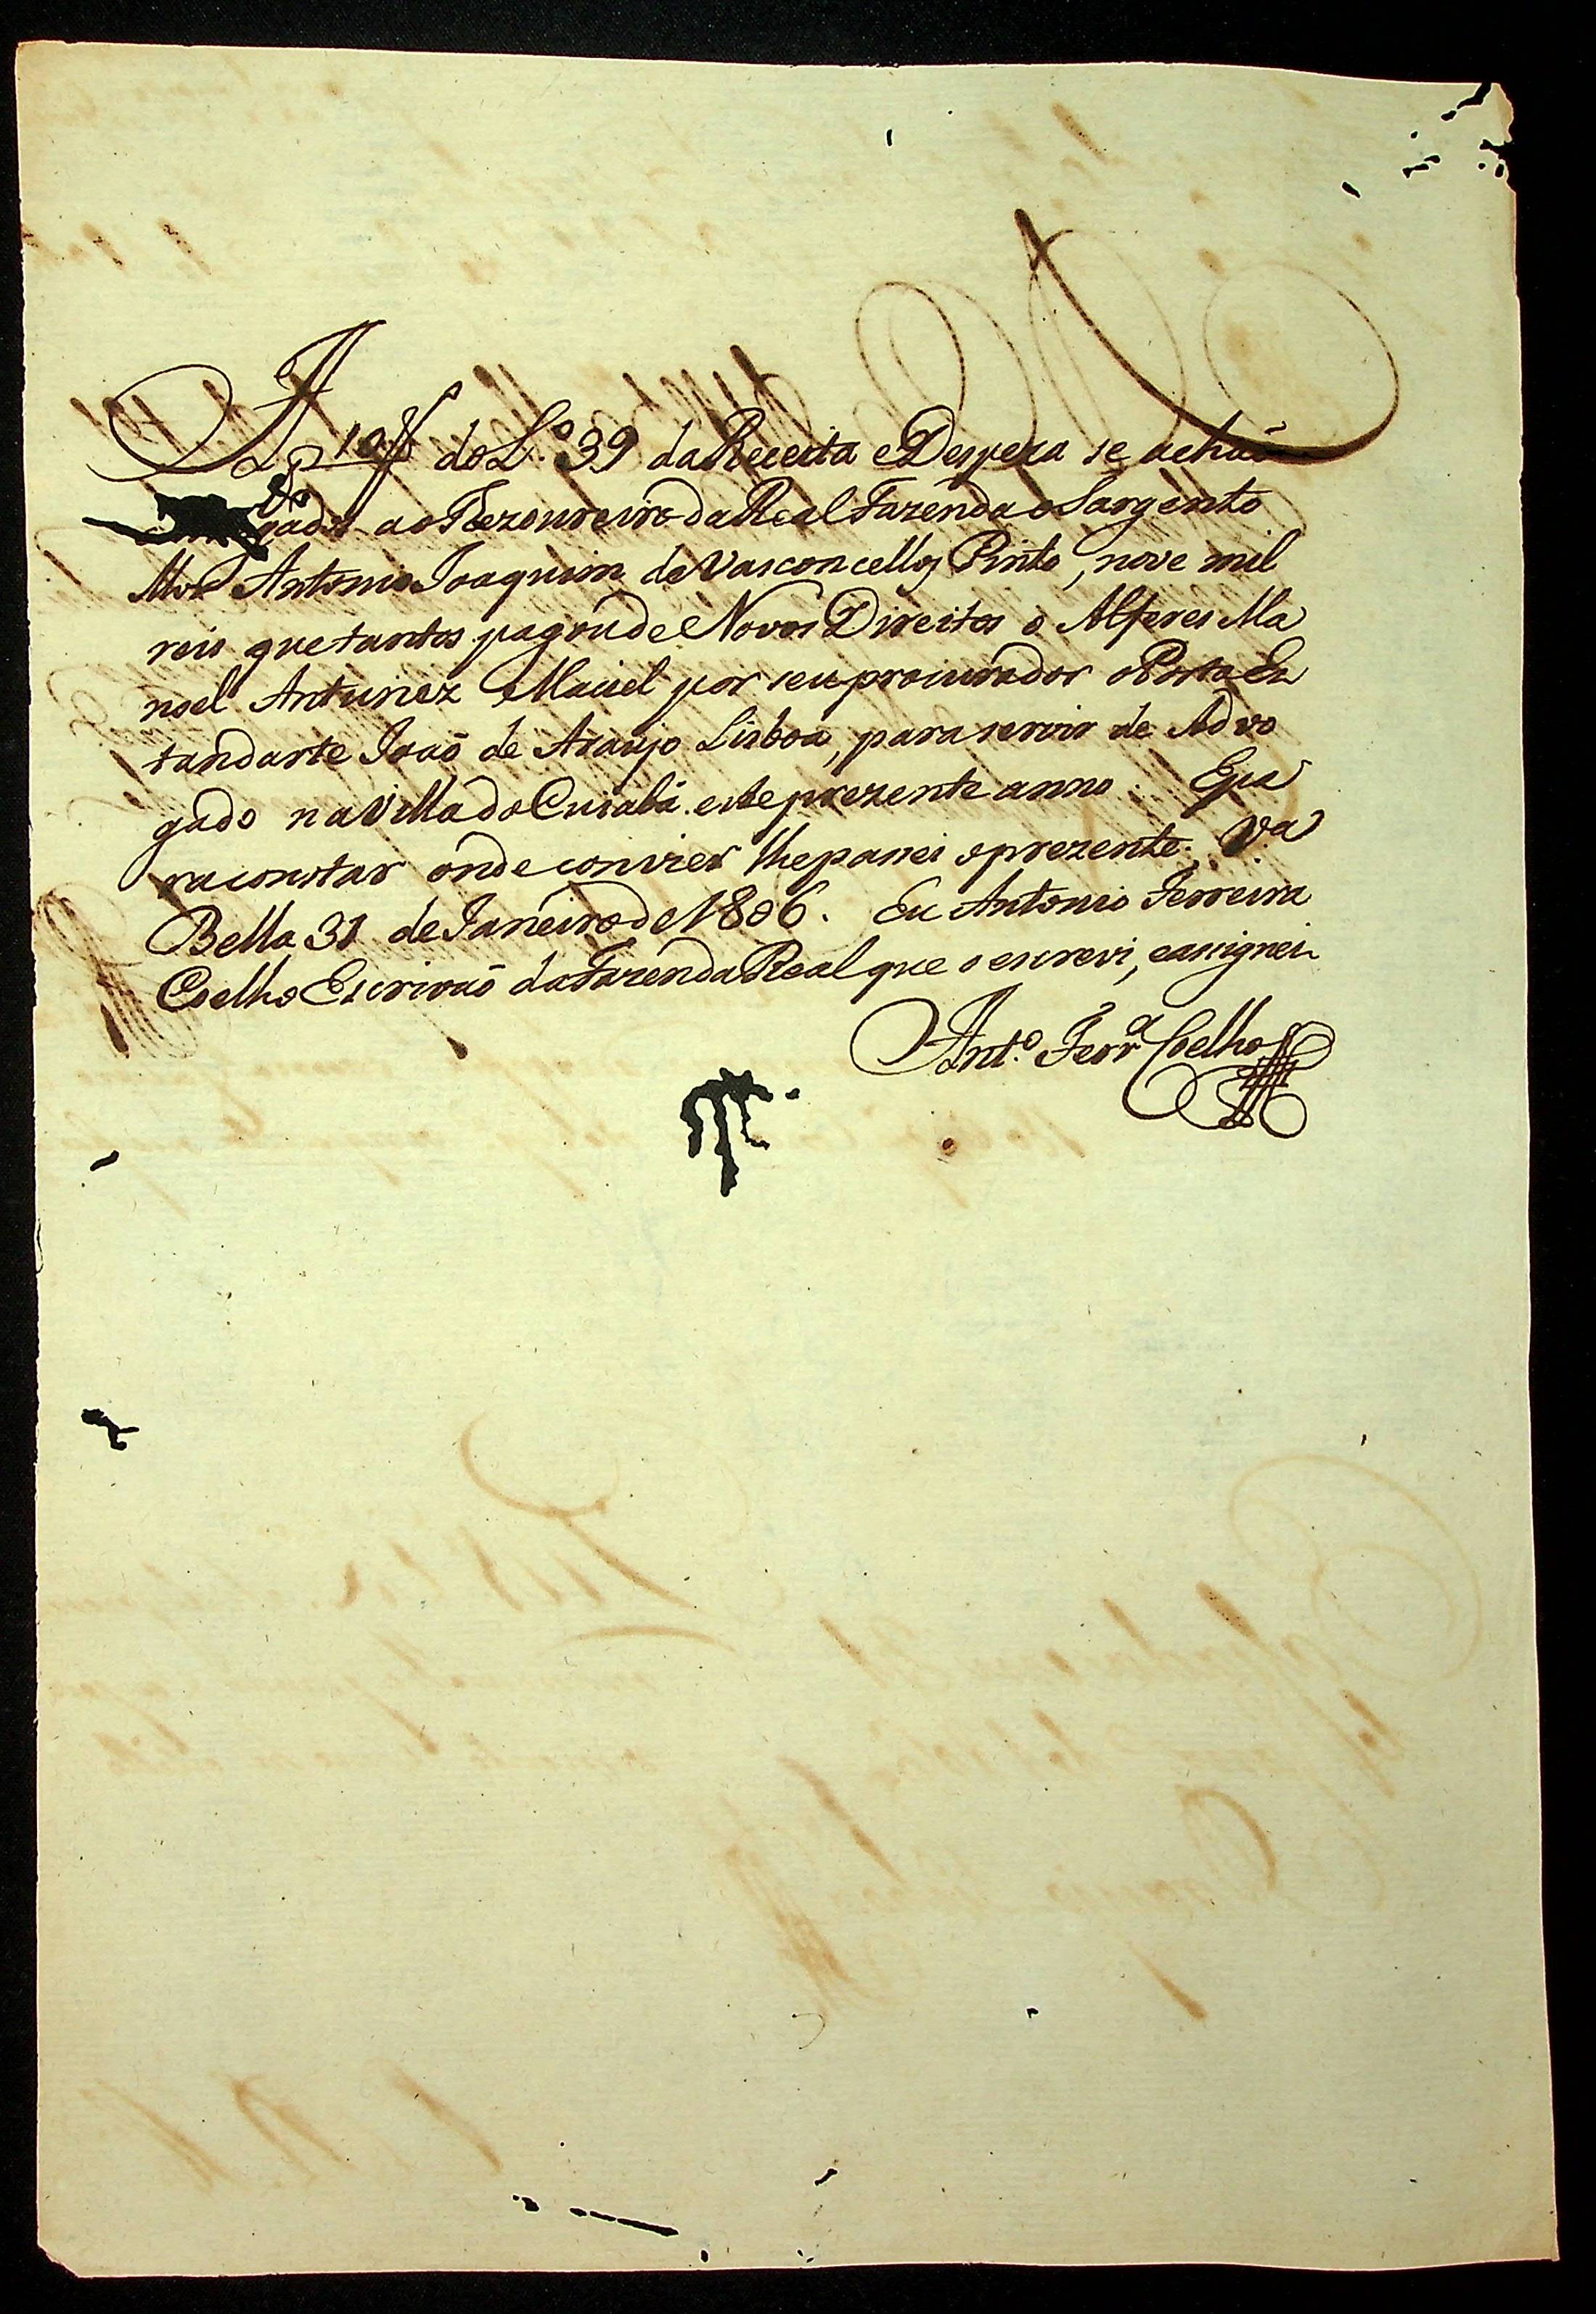 A do L.º 39 da Receita e Despeza se achaõ
gados ao Thezoureiro da Real Fazenda o Sargento
Mor Antonio Joaquim de Vasconcellos Pinto, nove mil
reis que tantos pagou de Novos Direitos o Alferes Ma
noel Antunez Maciel por seu procurador o Porta Es
tandarte Joaõ de Araujo Lisboa, para servir de Advo
gado na Villa do Cuiabá este prezente anno. E pa
ra constar onde convier lhe passei o prezente. V.ª
Bella 31 de Janeiro de 1806. Eu Antonio Ferreira
Coelho Escrivaõ da Fazenda Real que o escrevi, e assignei
Ant.º Ferr.ª Coelho